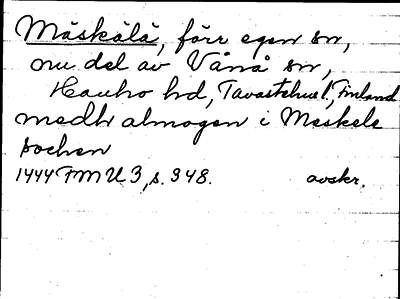 Mäskälä, förr egen sn,
nu del av Vånå sn,
Hauho hd, Tavastehus l, Finland
medh almogen i Meskele
sochen
1444 FMU 3, s. 348. avskr.